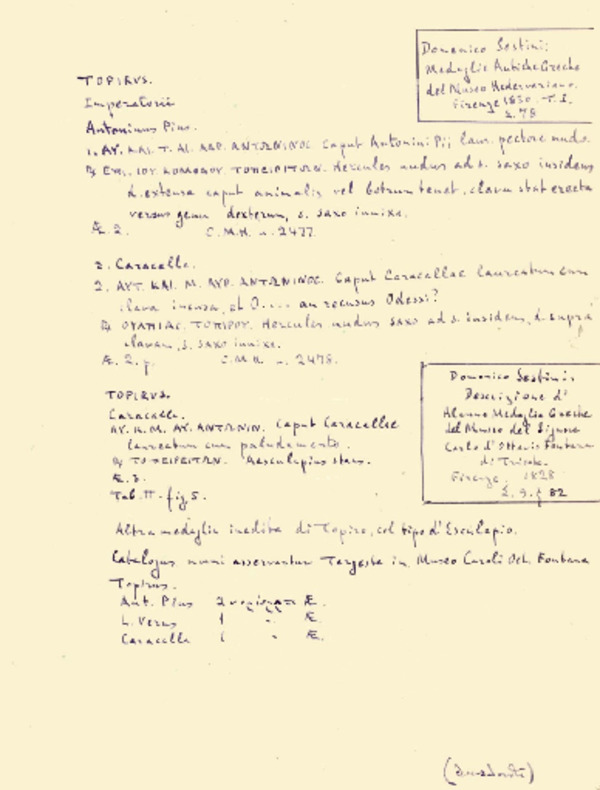 Domenico Sestini:
Medaglie Antiche Greche
del Museo Hedervariano.
Firenze 1830. T. I.
Σ. 78
TOPIRUS.
Imperatorii
Antoninus Pius.
1. ΑΥ. ΚΑΙ. Τ. ΑΙ. ΑΔΡ. ΑΝΤΩΝΙΝΟC. Caput Antonini Pii laur. pectore nudo.
℞ ΕΠΙ. ΙΟΥ. ΚΟΜΟΔΟΥ. ΤΟΠΕΙΡΙΤΩΝ. Hercules nudus ad s. saxo insidens
d. extensa caput animalis vel botrum tenet, clava stat erecta
versus genu dexterum, s. saxo innixa.
Æ. 2. C.M.H. n. 2477.
2. Caracalla.
2. ΑΥΤ. ΚΑΙ. Μ. ΑΥΡ. ΑΝΤΩΝΙΝΟC. Caput Caracallae laureatum cum
clava incusa, et O.... an recusus Odessi?
℞ ΟΥΛΠΙΑC. ΤΟΠΙΡΟΥ. Hercules nudus saxo ad s. insidens, d. supra
clavam, s. saxo innixa.
Æ. 2. C.M.H. n. 2478.
Domenico Sestini:
Descrizione d'
Alcune Medaglie Greche
del Museo del Signore
Carlo d'Ottavio Fontana
di Trieste.
Firenze. 1828
Σ. 9. 82
TOPIRUS.
Caracalla.
ΑΥ. Κ. Μ. ΑΥ. ΑΝΤΩΝΙΝ. Caput Caracallae
laureatum cum paludamento.
℞ ΤΟΠΕΙΡΕΙΤΩΝ. Aesculapius stans.
Æ. 3.
Tab. II. fig 5.
Altra medaglia inedita di Topiro, col tipo d'Esculapio.
Catalogus numi asservantur Tergeste in Museo Caroli Oct. Fontana
Topirus.
Ant. Pius 2 Æ.
L. Verus 1 " Æ.
Caracalla 1 " Æ.